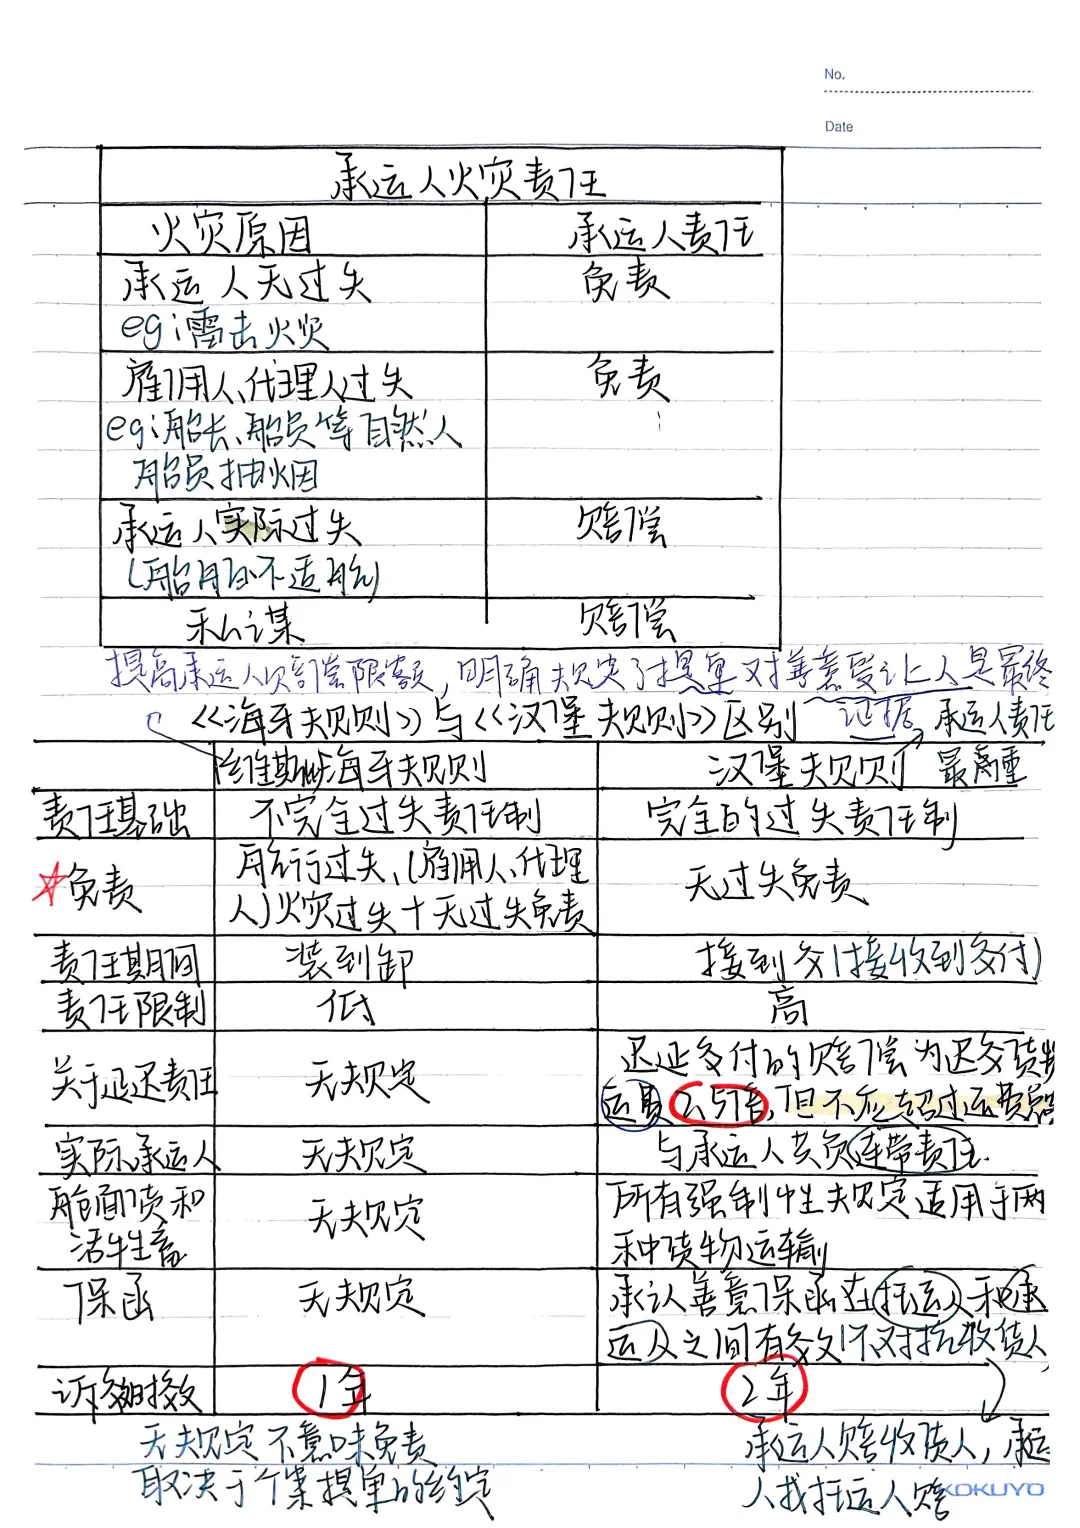 No.
Date
承运人火灾责任
火灾原因 承运人责任
承运人无过失 免责
eg:雷击火灾
雇佣人、代理人过失 免责
eg:船长、船员等自然人
船员抽烟
承运人实际过失 赔偿
(船舶不适航)
私谋 赔偿
提高承运人赔偿限额,明确规定了提单对善意受让人是最终
证据
《海牙规则》与《汉堡规则》区别 承运人责任
维斯比海牙规则 汉堡规则 最严重
责任基础 不完全过失责任制 完全的过失责任制
☆免责 航行过失、(雇佣人、代理 无过失免责
人)火灾过失+无过失免责
责任期间 装到卸 接到交(接收到交付)
责任限制 低 高
关于延迟责任 无规定 迟延交付的赔偿为迟交货物
运费2.5倍,但不应超过运费总
实际承运人 无规定 与承运人共负连带责任
舱面货和 无规定 所有强制性规定适用于两
活牲畜 种货物运输
保函 无规定 承认善意保函在托运人和承
运人之间有效(不对抗收货人
诉讼时效 1年 2年
无规定不意味免责 承运人赔收货人,承运
取决于个案提单的约定 人找托运人赔
KOKUYO